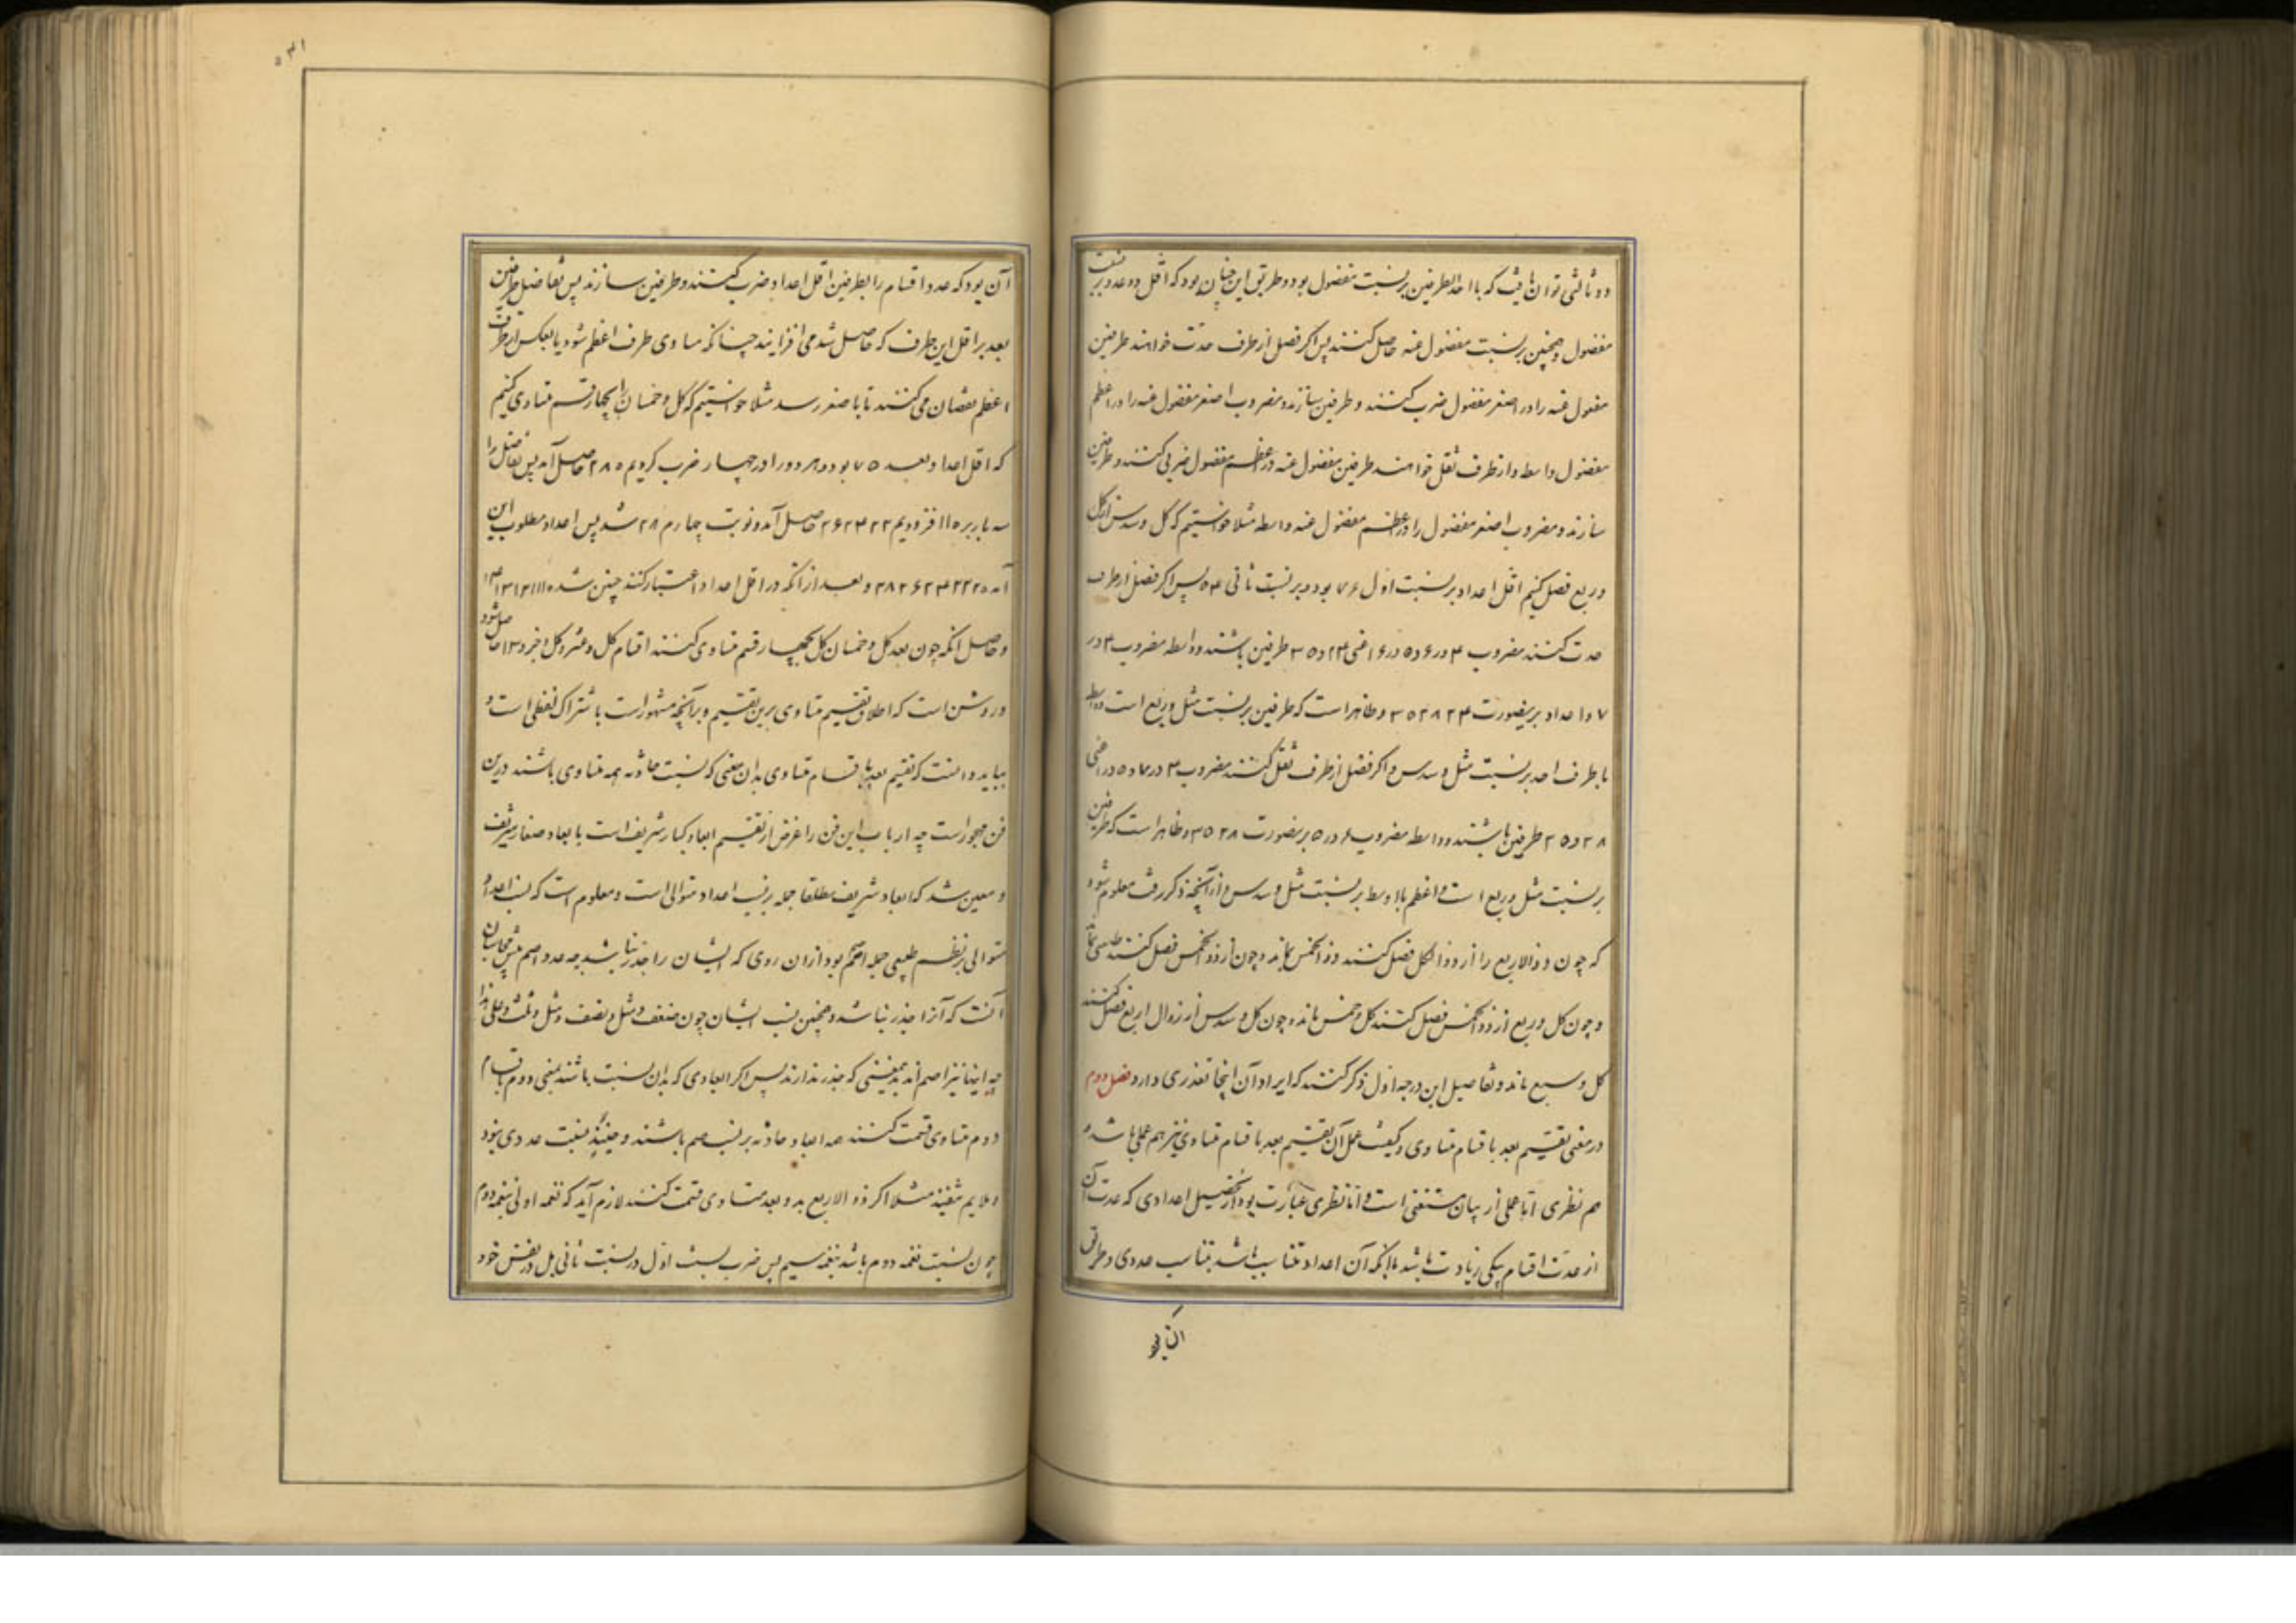 و ثالثی توان یافت که با احد الطرفین بر نسبت مفضول بود و طریق این چنان بود که اقل دو عدد بر نسبت
مفضول و همچنین بر نسبت مفضول عنه حاصل کنند پس اگر فصل از طرف حدت خواهند طرفین
مفضول عنه را در اصغر مفضول ضرب کنند و طرفین سازند و مضروب اصغر مفضول عنه را در اعظم
مفضول واسطه و از طرف ثقل خواهند طرفین مفضول عنه در اعظم مفضول ضرب کنند و طرفین
سازند و مضروب اصغر مفضول را در اعظم مفضول عنه واسطه مثلا خواستیم که کل و سدس از کل
و ربع فصل کنیم اقل اعداد بر نسبت اول ۷۶ بود و بر نسبت ثانی ۵۴ پس اگر فصل از طرف
حدت کنند مضروب ۴ در ۶ و ۵ در ۶ اعنی ۲۴ و ۳۰ طرفین باشند و واسطه مضروب ۴ در
۷ و اعداد بر یصورت ۲۴ ۲۸ ۳۰ و ظاهر است که طرفین بر نسبت مثل و ربع است و واسطه
با طرف احد بر نسبت مثل و سدس و اگر فصل از طرف ثقل کنند مضروب ۴ در ۷ و ۵ در ۷ اعنی
۲۸ و ۳۵ طرفین باشند و واسطه مضروب ۶ در ۵ بر یصورت ۲۸ ۳۰ ۳۵ و ظاهر است که طرفین
بر نسبت مثل و ربع است و اعظم با اوسط بر نسبت مثل و سدس و از آنچه ذکر رفت معلوم شود
که چون ذو الاربع را از ذو الکل فصل کنند ذو الخمس بماند و چون از ذو الخمس فصل کنند طنینی بماند
و چون کل و ربع از ذو الخمس فصل کنند کل و خمس ماند و چون کل و سدس از ذو الاربع فصل کنند
کل و سبع ماند و تفاصیل این درجه اول ذکر کنند که ایراد آن اینجا تعذری دارد فصل دوم
در معنی تقسیم بعد با قسام متساوی و کیفیت عمل آن تقسیم بعد با قسام متساوی نیز هم عملی باشد و
هم نظری اما عملی از بیان مستغنی است و اما نظری عبارت بود از تحصیل اعدادی که عدت آن
از عدت اقسام بیکی زیادت باشد با آنکه آن اعداد متناسب باشد تناسب عددی و طریق
آن بود که
آن بود که عدد اقسام را بطرفین اقل اعداد ضرب کنند و طرفین سازند پس تفاضل طرفین
بعد بر اقل این طرف که حاصل شد می افزایند چنانکه مساوی طرف اعظم شود یا بعکس از طرف
اعظم نقصان می کنند تا با صغر رسد مثلا خواستیم که کل و خمسان را بچهار قسم متساوی کنیم
که اقل اعداد بعد ۷۵ بود و هر دو را در چهار ضرب کردیم ۲۰ ۲۸ حاصل آمد پس تفاضل را
سه بار بر ۲۰ افزودیم ۲۲ ۲۴ ۲۶ حاصل آمد و نوبت چهارم ۲۸ شد پس اعداد مطلوب این
آمد ۲۰ ۲۲ ۲۴ ۲۶ ۲۸ و بعد از آنکه در اقل اعداد اعتبار کنند چنین شد ۱۰ ۱۱ ۱۲ ۱۳ ۱۴
و حاصل آنکه چون بعد کل و خمسان کل بچهار قسم متساوی کنند اقسام کل و عشر و کل و جزو ۱۳ حاصل شود
و روشن است که اطلاق تقسیم متساوی برین تقسیم و بر آنچه مشهور است باشتراک لفظی است و
بباید دانست که تقسیم بعد با قسام متساوی بدان معنی که نسبت حادثه همه متساوی باشند درین
فن مهجور است چه ارباب این فن را غرض از تقسیم ابعاد کبار شریف است با بعاد صغار شریف
و معین شد که ابعاد شریف مطلقا جمله بر نسب اعداد متوالی است و معلوم است که نسب اعداد
متوالی بر نظم طبیعی جمله اصم بود از آن روی که ایشان را جذر نباشد چه عدد اصم پیش محاسبان
آنست که آنرا جذر نباشد و همچنین نسب ایشان چون ضعف و مثل و نصف و مثل و ثلث و علی هذا
چه اینها نیز اصم اند بمعنی که جذر ندارند پس اگر ابعادی که بدان نسبت باشند بمعنی دوم با قسام
دوم متساوی قسمت کنند همه ابعاد حادثه بر نسب صم باشند و حینئذ نسبت عددی نبود
و ملایم نیفتد مثلا اگر ذو الاربع بدو بعد متساوی قسمت کنند لازم آید که نغمه اولی بنغمه دوم
چون نسبت نغمه دوم باشد بنغمه سیم پس ضرب نسبت اول در نسبت ثانی بل در نفس خود